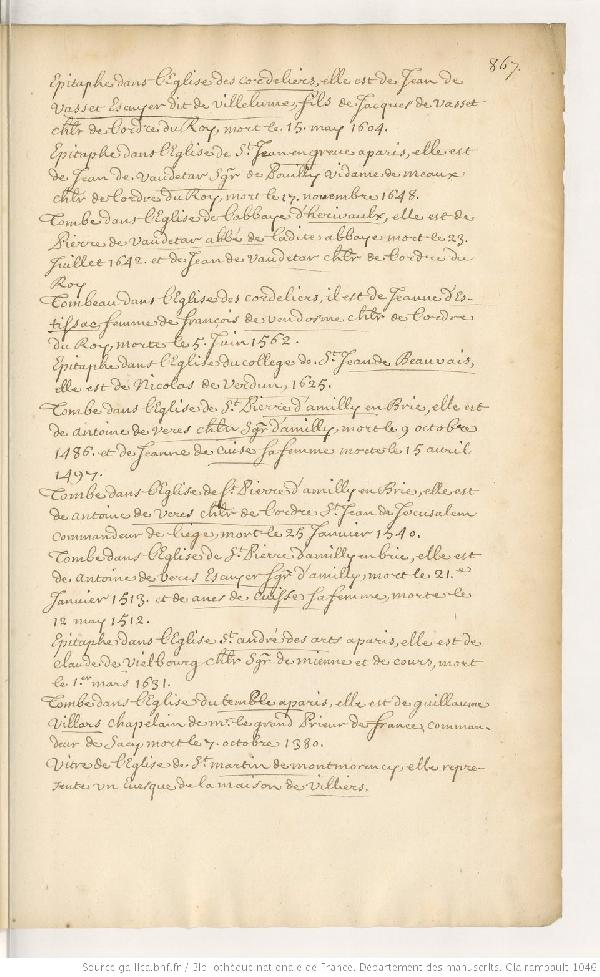 867.
Epitaphe dans l'Eglise des cordeliers, elle est de Jean de
Vasset Escuyer dit de Villelume, fils de Jacques de Vasset
chlr de l'ordre du Roy, mort le 15. may 1604.
Epitaphe dans l'Eglise de St. Jean en greve a paris, elle est
de Jean de Vaudetar Sgr de Pouilly Vidame de meaux
chlr de l'ordre du Roy, mort le 17. novembre 1648.
Tombe dans l'Eglise de l'abbaye d'herivaulx, elle est de
Pierre de Vaudetar abbé de ladite abbaye mort le 23.
Juillet 1642. et de Jean de Vaudetar chlr de l'ordre du
Roy
Tombeau dans l'Eglise des cordeliers, il est de Jeanne d'Es-
tissac femme de françois de vendosme chlr de l'ordre
du Roy, morte le 5. Juin 1562.
Epitaphe dans l'Eglise du college de St. Jean de Beauvais,
elle est de Nicolas de Verdun, 1625.
Tombe dans l'Eglise de St. Pierre d'amilly en Brie, elle est
de antoine de veres chlr Sgr d'amilly, mort le 9 octobre
1486. et de Jeanne de cuise sa femme morte le 15 avril
1497.
Tombe dans l'Eglise de St. Pierre d'amilly en Brie, elle est
de antoine de veres chlr de l'ordre St. Jean de Jerusalem
commandeur de liege, mort le 25 Janvier 1540.
Tombe dans l'Eglise de St. Pierre d'amilly en brie, elle est
de antoine de veres Escuyer Sgr d'amilly, mort le 21.e
Janvier 1513. et de anes de Cuisse sa femme, morte le
12 may 1512.
Epitaphe dans l'Eglise St. andré des arts a paris, elle est de
claude de Vielbourg chlr Sgr de mienne et de cours, mort
le 1.er mars 1631.
Tombe dans l'Eglise du temple a paris, elle est de guillaume
Villars chapelain de mr. le grand Prieur de france, comman-
deur de Sacy mort le 7. octobre 1380.
Vitre de l'Eglise de St. martin de montmorency, elle repre-
sente un Evesque de la maison de Villiers.
Source gallica.bnf.fr / Bibliothèque nationale de France. Département des manuscrits. Clairambault 1046